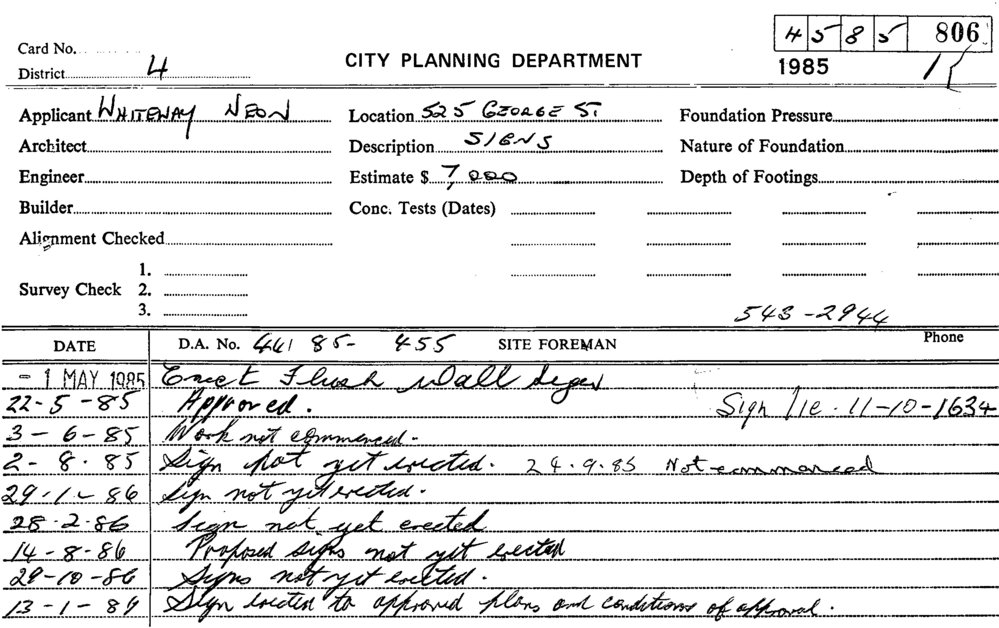 4585 806
Card No.
District 4
CITY PLANNING DEPARTMENT
1985
Applicant WHITEWAY NEON
Location 525 GEORGE ST
Foundation Pressure
Architect
Description SIGNS
Nature of Foundation
Engineer
Estimate $ 7,000
Depth of Footings
Builder
Conc. Tests (Dates)
Alignment Checked
1.
Survey Check 2.
3.
543-2944
DATE
D.A. No. 441 85- 455 SITE FOREMAN
Phone
- 1 MAY 1985 Erect Flush Wall
22-5-85 Approved. Sign lic. 11-10-1634
3-6-85 Work not commenced.
2-8.85 Sign not yet erected. 24.9.85 Not commenced
29-1-86 Sign not yet erected.
28-2-86 Sign not yet erected
14-8-86 Proposed signs not yet erected
29-10-86 Signs not yet erected.
13-1-87 Sign erected to approved plans and conditions of approval.